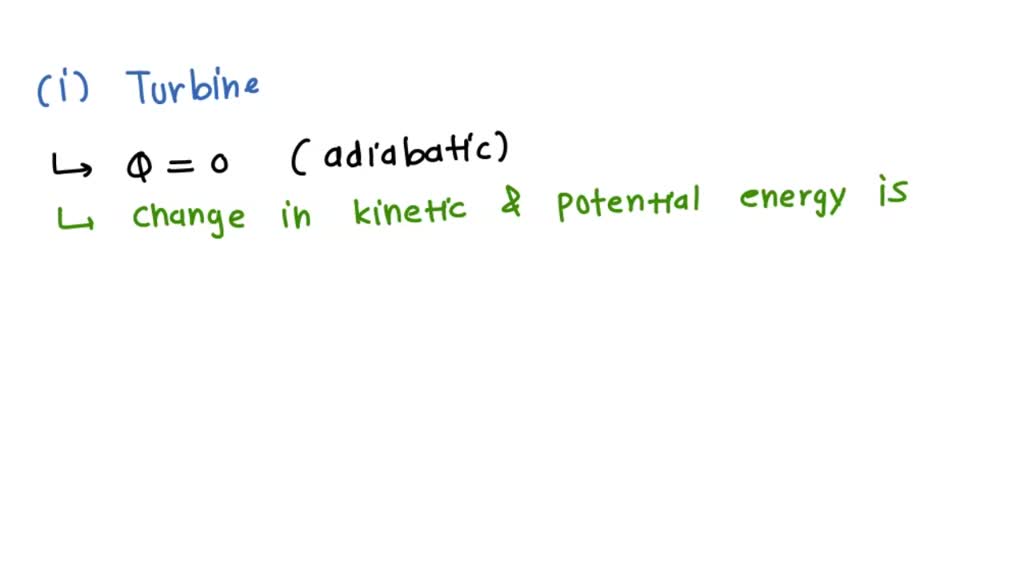 (i) Turbine
↳ Q = 0 (adiabatic)
↳ change in kinetic & potential energy is